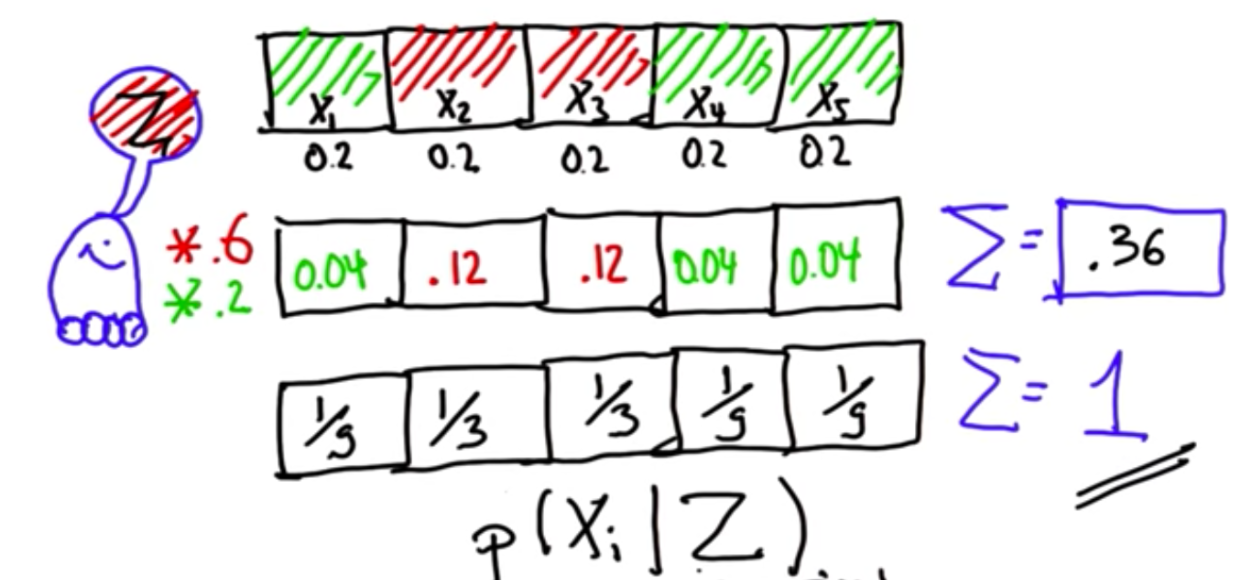 X1 X2 X3 X4 X5
Z
0.2 0.2 0.2 0.2 0.2
*.6
*.2
0.04 .12 .12 0.04 0.04 Σ= .36
1/9 1/3 1/3 1/9 1/9 Σ= 1
p(Xi|Z)